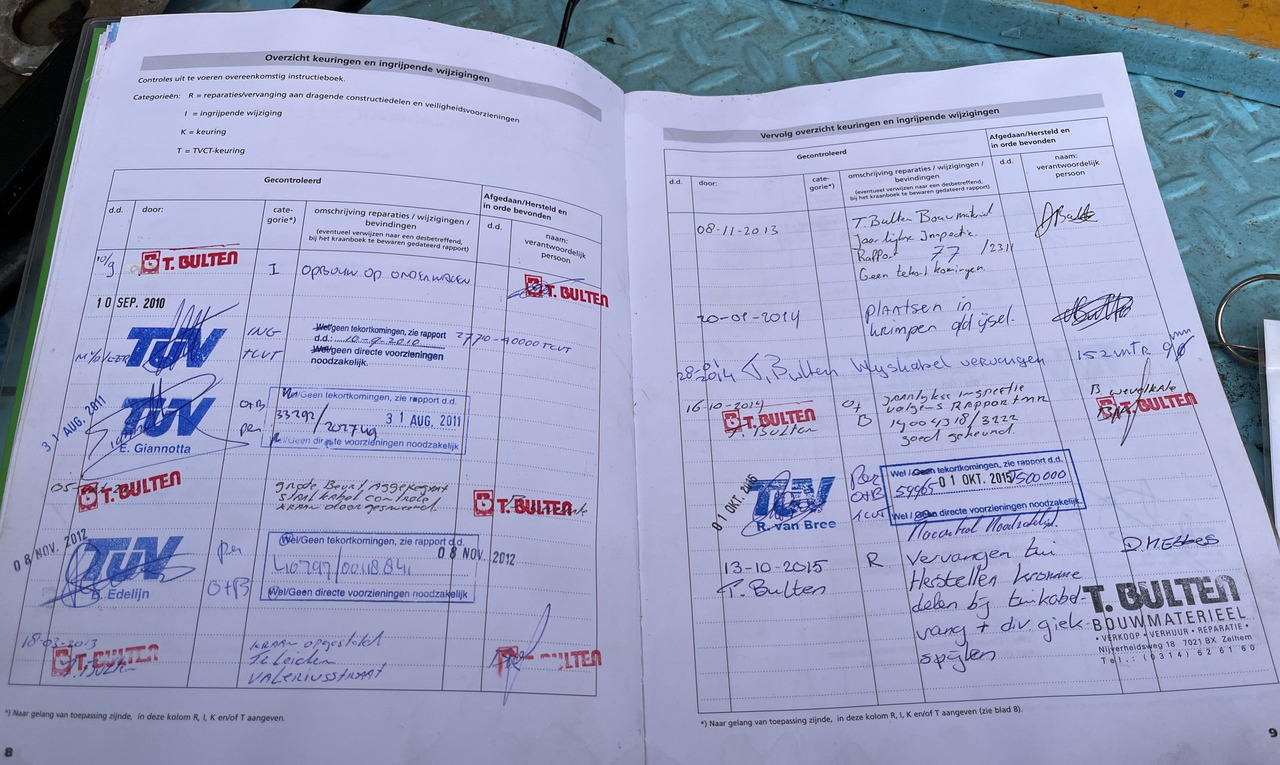 Overzicht keuringen en ingrijpende wijzigingen
Controles uit te voeren overeenkomstig instructieboek.
Categorieën: R = reparaties/vervanging aan dragende constructiedelen en veiligheidsvoorzieningen
I = ingrijpende wijziging
K = keuring
T = TVCT-keuring
Gecontroleerd
Afgedaan/Hersteld en in orde bevonden
d.d.
door:
cate-
gorie*)
omschrijving reparaties / wijzigingen /
bevindingen
(eventueel verwijzen naar een desbetreffend,
bij het kraanboek te bewaren gedateerd rapport)
d.d.
naam:
verantwoordelijk
persoon
T. BULTEN
I
OPBOUW OP ONDERWAGEN
T. BULTEN
10 SEP. 2010
TÜV
ING
TCVT
Wel/geen tekortkomingen, zie rapport
d.d.: 10-9-2010
Wel/geen directe voorzieningen
noodzakelijk.
31 AUG. 2011
TÜV
E. Giannotta
O+B
per
Wel/Geen tekortkomingen, zie rapport d.d.
31 AUG. 2011
Wel/Geen directe voorzieningen noodzakelijk.
T. BULTEN
grote Beurt Aggregaat
staalkabel controle
kraan doorgesmeerd.
T. BULTEN
08 NOV. 2012
TÜV
Edelijn
per
O+B
Wel/Geen tekortkomingen, zie rapport d.d.
08 NOV. 2012
40797/00118841
Wel/Geen directe voorzieningen noodzakelijk.
18-03-2013
T. BULTEN
kraan opgesteld
te Leiden
Valeriusstraat
T. BULTEN
*) Naar gelang van toepassing zijnde, in deze kolom R, I, K en/of T aangeven.
8
Vervolg overzicht keuringen en ingrijpende wijzigingen
Gecontroleerd
Afgedaan/Hersteld en
in orde bevonden
d.d.
door:
cate-
gorie*)
omschrijving reparaties / wijzigingen /
bevindingen
(eventueel verwijzen naar een desbetreffend,
bij het kraanboek te bewaren gedateerd rapport)
d.d.
naam:
verantwoordelijk
persoon
08-11-2013
T. Bulten Bouwmaterieel
Jaarlijkse Inspectie
Rapport 77 /2311
Geen tekortkomingen
20-01-2014
plaatsen in
krimpen a/d ijsel.
T. Bulten Hyskabel vervangen 152 mtr
16-10-2014
T. BULTEN
T. Bulten
O+
B
jaarlijkse inspectie
volgens RAPPORT nr
14004318/3222
goed gekeurd
T. BULTEN
01 OKT. 2015
TÜV
R. van Bree
Per
O+B
TCVT
Wel / Geen tekortkomingen, zie rapport d.d.
01 OKT. 2015
Wel / Geen directe voorzieningen noodzakelijk.
13-10-2015
T. Bulten
R
Vervangen tui
Herstellen kromme
delen bij tuikabel-
vang + div. giek-
spijlen
T. BULTEN
BOUWMATERIEEL
• VERKOOP • VERHUUR • REPARATIE •
Nijverheidsweg 18 7021 BX Zelhem
Tel.: (0314) 62 61 60
*) Naar gelang van toepassing zijnde, in deze kolom R, I, K en/of T aangeven (zie blad 8).
9